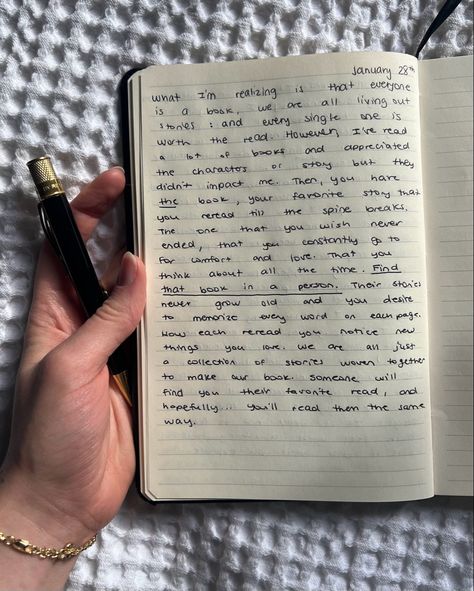 January 28th
What I'm realizing is that everyone
is a book. We are all living out
stories; and every single one is
worth the read. However, I've read
a lot of books and appreciated
the characters or story but they
didn't impact me. Then, you have
the book, your favorite story that
you reread till the spine breaks.
The one that you wish never
ended, that you constantly go to
for comfort and love. That you
think about all the time. Find
that book in a person. Their stories
never grow old and you desire
to memorize every word on each page.
How each reread you notice new
things you love. We are all just
a collection of stories woven together
to make our book. Someone will
find you their favorite read, and
hopefully... you'll read them the same
way.